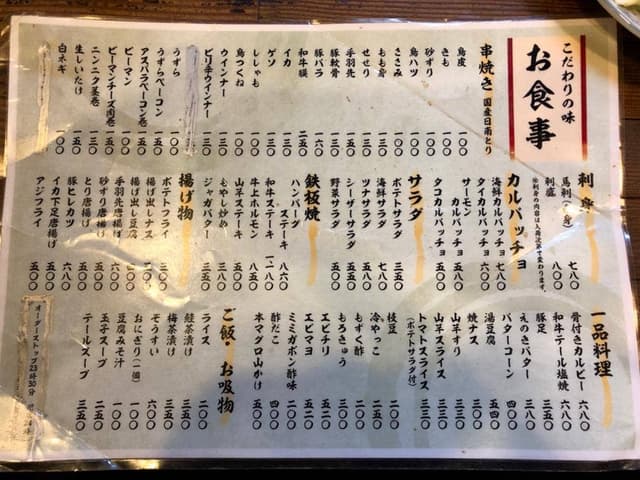 こだわりの味
お食事
串焼き 国産日南とり
鳥皮 一〇〇
きも 一〇〇
砂ずり
鳥ハツ 一三〇
ささみ 一三〇
もも身 一三〇
せせり 一三〇
手羽先 一五〇
豚軟骨 一三〇
豚バラ 一六〇
和牛横 二五〇
イカ
ゲソ 一三〇
ししゃも
鳥つくね
ウインナー 一三〇
ピリ辛ウインナー 一三〇
うずら 一〇〇
うずらベーコン 一五〇
アスパラベーコン巻 一五〇
ピーマン 一〇〇
ピーマンチーズ肉巻 一五〇
ニンニク茎巻 一三〇
生しいたけ 一五〇
白ネギ 一〇〇
刺身
馬刺(赤身) 七八〇
刺盛 八〇〇
※刺身の内容は入荷次第で変わります。
カルパッチョ
海鮮カルパッチョ 七八〇
タイカルパッチョ 六〇〇
サーモン
カルパッチョ 五八〇
タコカルパッチョ 五〇〇
サラダ
ポテトサラダ 三五〇
海鮮サラダ 七八〇
ツナサラダ 五五〇
シーザーサラダ 五五〇
野菜サラダ 五〇〇
鉄板焼
ハンバーグ
ステーキ 八六〇
和牛ステーキ 一二八〇
牛上ホルモン 八五〇
山芋ステーキ 五八〇
もやし炒め 三五〇
ジャガバター 三五〇
揚げ物
ポテトフライ 三〇〇
揚げ出しナス
揚げ出し豆腐
手羽先唐揚げ
砂ずり唐揚げ
とり唐揚げ
豚ヒレカツ 六八〇
イカ下足唐揚げ 五〇〇
アジフライ 五〇〇
一品料理
骨付きカルビー 六八〇
和牛テール塩焼 六八〇
豚足 四五〇
えのきバター 三八〇
バターコーン 四〇〇
湯豆腐 五四〇
焼ナス
山芋すり 三三〇
山芋スライス 三三〇
トマトスライス 三三〇
(ポテトサラダ付)
枝豆 二〇〇
冷やっこ
もずく酢
もろきゅう 三三〇
エビチリ 五二〇
エビマヨ 五二〇
ミミガポン酢味 五二〇
酢だこ 四〇〇
ネマグロ山かけ 五二〇
ご飯・お吸物
ライス 二〇〇
鮭茶漬け 三五〇
梅茶漬け 三五〇
ぞうすい 四〇〇
おにぎり(一個) 一六〇
豆腐みそ汁 二〇〇
玉子スープ 三〇〇
テールスープ 三五〇
オーダーストップ23時30分